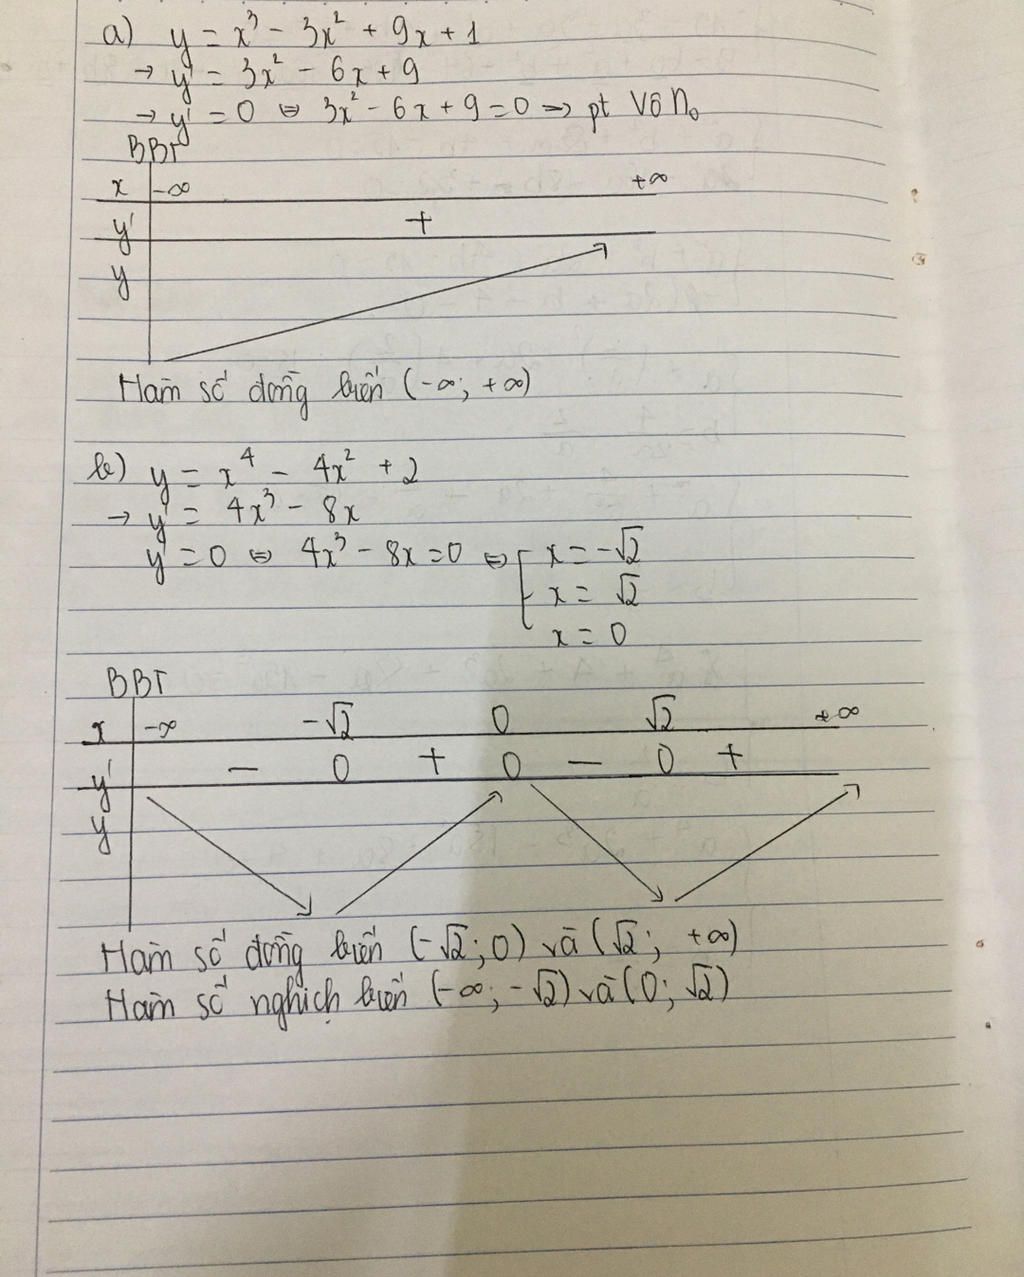 a) y = x³ - 3x² + 9x + 1
→ y' = 3x² - 6x + 9
→ y' = 0 ⇔ 3x² - 6x + 9 = 0 → pt vô n₀
BBT
x -∞ +∞
y' +
y
Hàm số đồng biến (-∞; +∞)
b) y = x⁴ - 4x² + 2
→ y' = 4x³ - 8x
y' = 0 ⇔ 4x³ - 8x = 0 ⇔ [ x = -√2
x = √2
x = 0
BBT
x -∞ -√2 0 √2 +∞
y' - 0 + 0 - 0 +
y
Hàm số đồng biến (-√2; 0) và (√2; +∞)
Hàm số nghịch biến (-∞; -√2) và (0; √2)